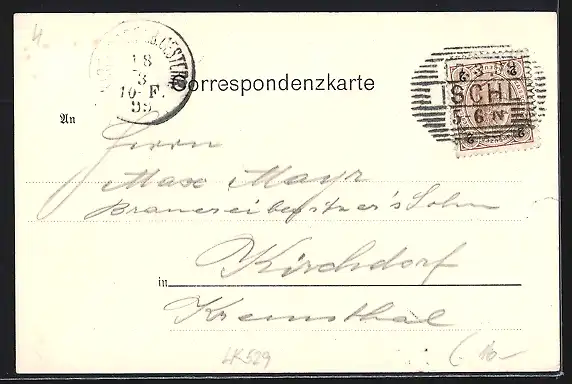 4
18
3
10-F.
99
Correspondenzkarte
ISCHL
5-6 N
2 2
2 2
An
Herrn
Max Mayr
Brauereibesitzer's Sohn
Kirchdorf
in
Kremsthal
LK529
10.-